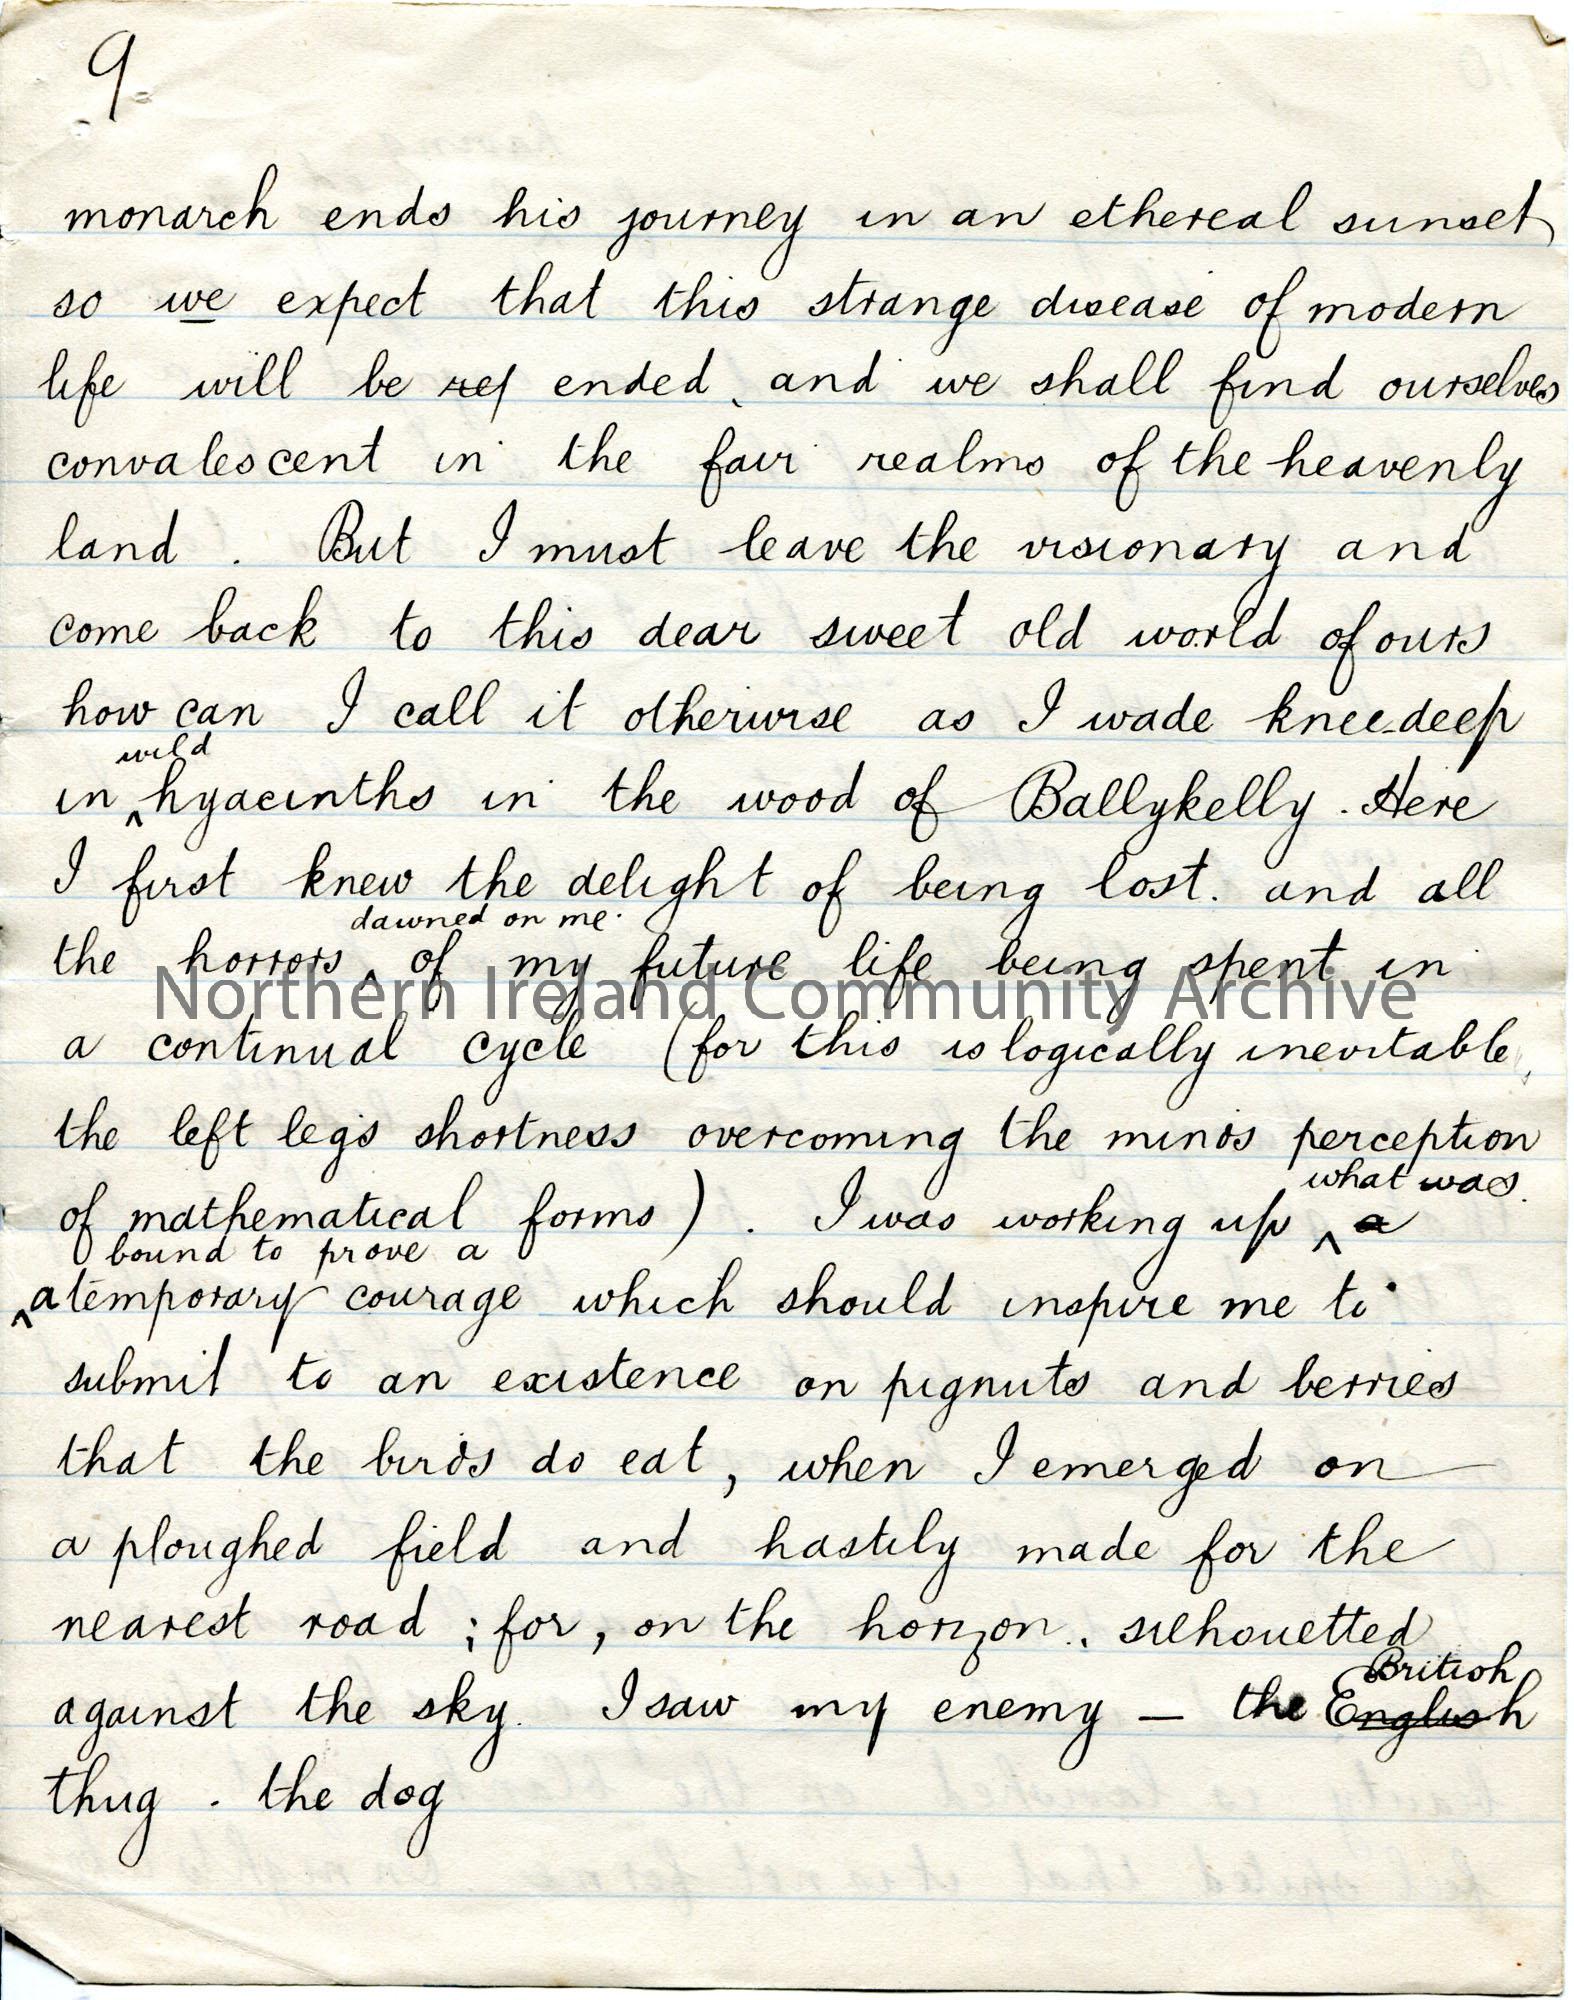 9.
monarch ends his journey in an ethereal sunset
so we expect that this strange disease of modern
life will be ref ended, and we shall find ourselves
convalescent in the fair realms of the heavenly
land . But I must leave the visionary and
come back to this dear sweet old world of ours
how can I call it otherwise as I wade knee-deep
wild
in ^ hyacinths in the wood of Ballykelly . Here
I first knew the delight of being lost. and all
dawned on me.
the horrors ^ of my future life being spent in
Northern Ireland Community Archive
a continual cycle (for this is logically inevitable,
the left legs shortness overcoming the minds perception
what was
of mathematical forms) . I was working up ^ a
bound to prove a
^ a temporary courage which should inspire me to
submit to an existence on pignuts and berries
that the birds do eat, when I emerged on
a ploughed field and hastily made for the
nearest road ; for, on the horizon, silhouetted
British
against the sky. I saw my enemy — the English
thug . the dog